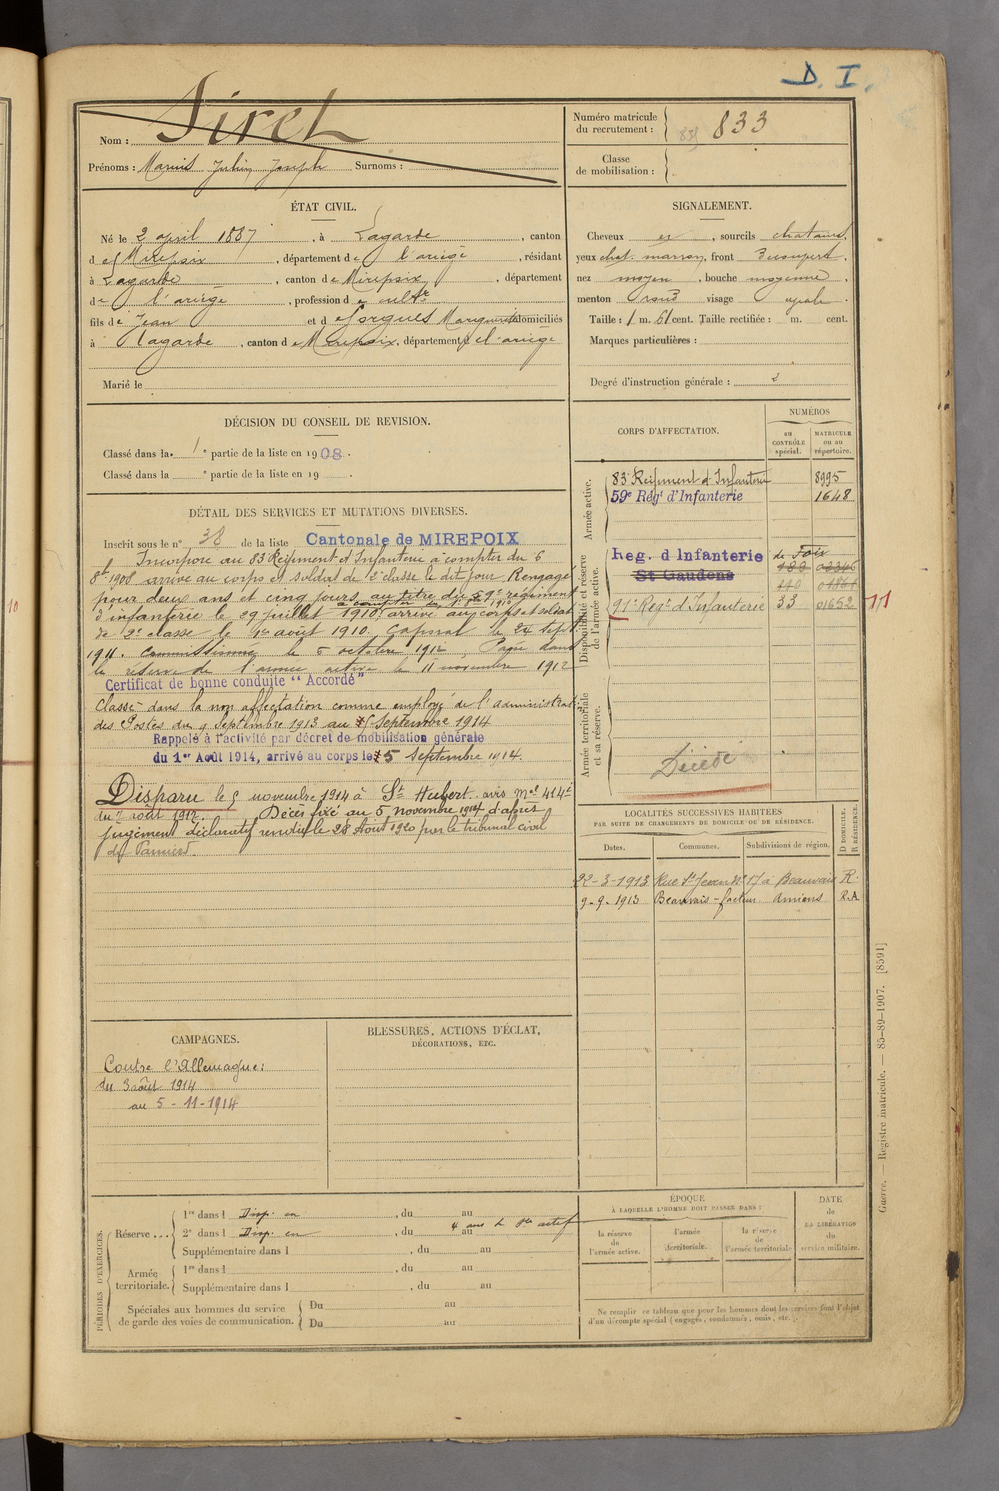 D. I.
Nom : Siret
Prénoms : Marius Julien Joseph Surnoms :
Numéro matricule du recrutement : 833
Classe de mobilisation :
ÉTAT CIVIL.
Né le 2 april 1887, à Lagarde, canton
d e Mirepoix, département de l'ariège, résidant
à Lagarde, canton de Mirepoix, département
de l'ariège, profession de cultr
fils de Jean et de Sorgues Marguerite domiciliés
à Lagarde, canton de Mirepoix, département de l'ariège
Marié le
SIGNALEMENT.
Cheveux et, sourcils chatains,
yeux chat. marron, front découvert,
nez moyen, bouche moyenne,
menton rond visage ovale.
Taille : 1 m. 61 cent. Taille rectifiée : m. cent.
Marques particulières :
Degré d'instruction générale : 2
DÉCISION DU CONSEIL DE REVISION.
Classé dans la 1e partie de la liste en 1908.
Classé dans la e partie de la liste en 19 .
DÉTAIL DES SERVICES ET MUTATIONS DIVERSES.
Inscrit sous le n° 38 de la liste Cantonale de MIREPOIX
Incorporé au 83 Régiment d'Infanterie à compter du 6
8bre 1908 arrivé au corps et soldat de 2e classe le dit jour. Rengagé
pour deux ans et cinq jours au titre du 59e régiment
à compter du 1er 8bre 1910
d'infanterie le 29 juillet 1910, arrivé au corps et soldat
de 2e classe le 1er août 1910. Caporal le 24 sept
1911. Commissionné le 5 octobre 1912. Passé dans
la réserve de l'armée active le 11 novembre 1912
Certificat de bonne conduite "Accordé"
Classé dans la non affectation comme employé de l'administration
des Postes du 9 Septembre 1913 au 5 Septembre 1914
Rappelé à l'activité par décret de mobilisation générale
du 1er Août 1914, arrivé au corps le 5 Septembre 1914.
Disparu le 5 novembre 1914 à St Hubert avis Mel 414
du 7 août 1917. Décès fixé au 5 novembre 1914 d'après
jugement déclaratif rendu le 28 Août 1920 par le tribunal civil
de Pamiers.
CORPS D'AFFECTATION.
NUMÉROS
au CONTRÔLE spécial.
MATRICULE ou au répertoire.
Armée active.
83e Régiment d'Infanterie 8995
59e Régt d'Infanterie 1648
Disponibilité et réserve de l'armée active.
Reg. d Infanterie de Foix
St Gaudens
91e Régt d'Infanterie 33 01652
11
Armée territoriale et sa réserve.
Décédé
LOCALITÉS SUCCESSIVES HABITÉES
PAR SUITE DE CHANGEMENTS DE DOMICILE OU DE RÉSIDENCE.
Dates. Communes. Subdivisions de région. D DOMICILE. R RÉSIDENCE.
22-3-1913 Rue St Jean No 17 à Beauvais R.
9-9-1913 Beauvais - facteur Amiens R.A
CAMPAGNES.
Contre l'Allemagne :
du 3 août 1914
au 5-11-1914
BLESSURES, ACTIONS D'ÉCLAT,
DÉCORATIONS, ETC.
PÉRIODES D'EXERCICES.
Réserve ... 1re dans l Disp. en, du au
2e dans l Disp. en, du au 4 ans de sce actif
Supplémentaire dans l, du au
Armée territoriale. 1re dans l, du au
Supplémentaire dans l, du au
Spéciales aux hommes du service de garde des voies de communication. Du au
Du au
ÉPOQUE
À LAQUELLE L'HOMME DOIT PASSER DANS :
la réserve de l'armée active.
l'armée territoriale.
la réserve de l'armée territoriale
DATE de LA LIBÉRATION du service militaire.
Ne remplir ce tableau que pour les hommes dont les services font l'objet
d'un décompte spécial (engagés, condamnés, omis, etc.).
Guerre. Registre matricule. — 85-89-1907. [8591]
10